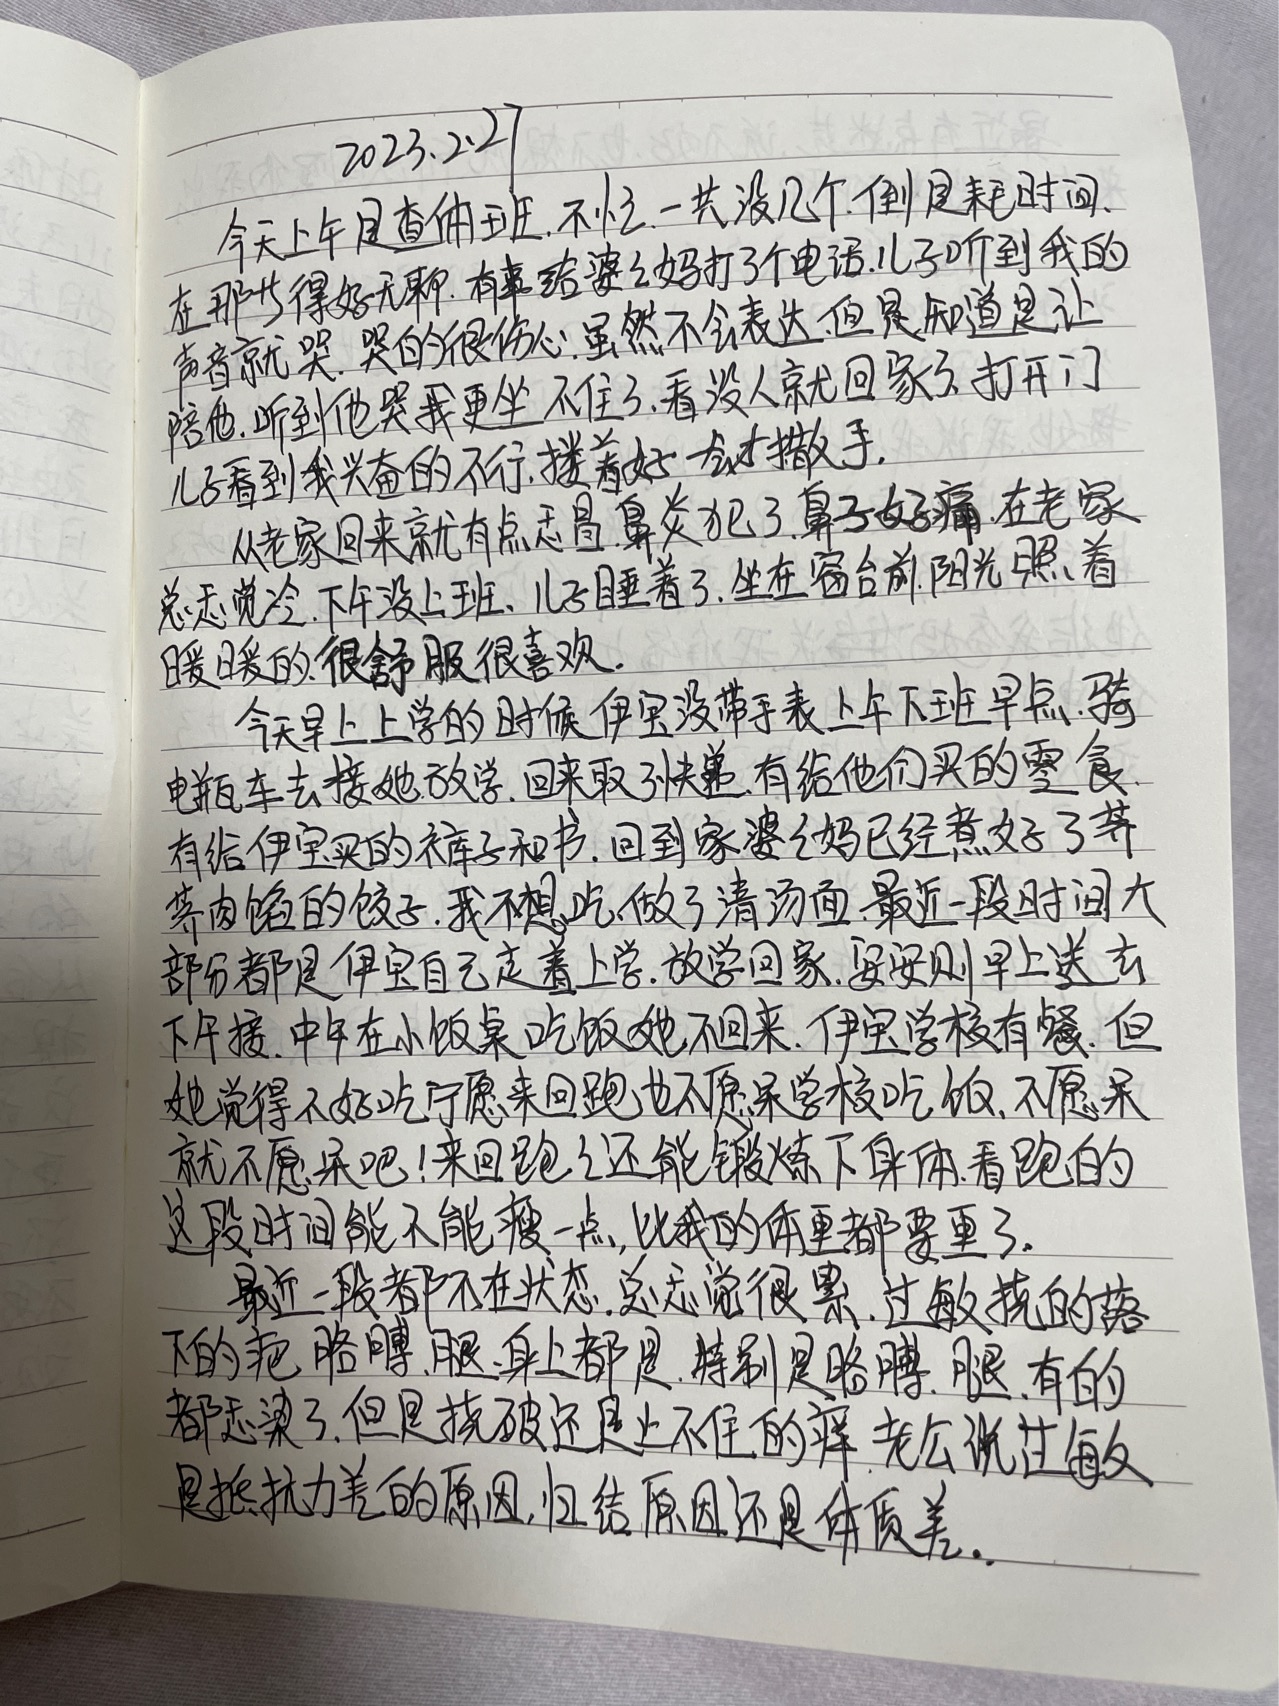 2023.2.27
今天上午是查体班.不忙.一共没几个.倒是耗时间.
在那觉得好无聊.有事给婆婆妈打了个电话.儿子听到我的
声音就哭.哭的很伤心.虽然不会表达.但是知道是让
陪他.听到他哭我更坐不住了.看没人就回家了.打开门
儿子看到我兴奋的不行.搂着好一会才撒手.
从老家回来就有点感冒.鼻炎犯了.鼻子好痛.在老家
总感觉冷.下午没上班、儿子睡着了.坐在窗台前.阳光照着
暖暖的.很舒服很喜欢.
今天早上上学的时候伊宝没带手表上午下班早点.骑
电瓶车去接她放学.回来取了快递.有给他们买的零食.
有给伊宝买的裤子和书.回到家婆婆妈已经煮好了荠
荠肉馅的饺子.我不想吃.做了清汤面.最近一段时间大
部分都是伊宝自己走着上学.放学回家.安安则早上送去
下午接.中午在小饭桌吃饭她不回来.伊宝学校有餐.但
她觉得不好吃宁愿来回跑也不愿呆学校吃饭.不愿呆
就不愿呆吧！来回跑跑还能锻炼下身体.看跑的
这段时间能不能瘦一点,比我的体重都要重了.
最近一段都不在状态.总感觉很累.过敏挠的落
下的疤.胳膊、腿、身上都是.特别是胳膊、腿.有的
都感染了.但是挠破还是止不住的痒.老公说过敏
是抵抗力差的原因,归结原因还是体质差..